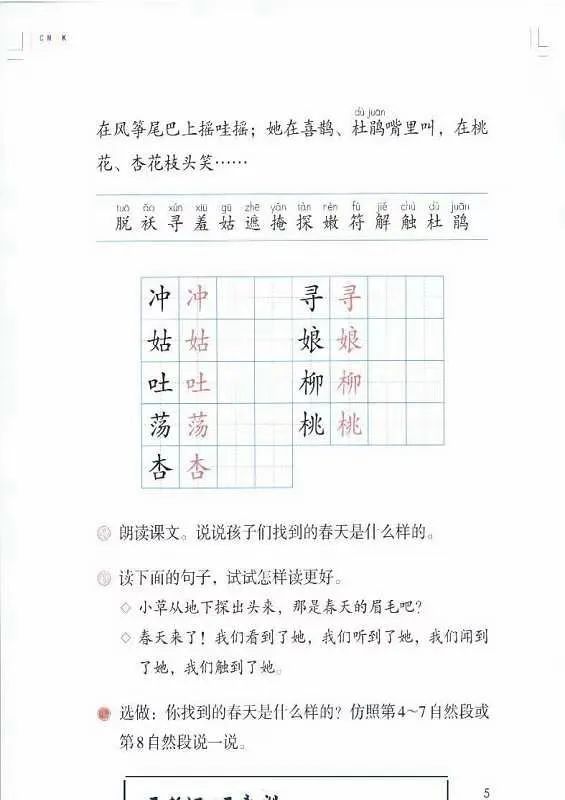 CM K
dù juān
在风筝尾巴上摇哇摇；她在喜鹊、杜鹃嘴里叫，在桃
花、杏花枝头笑……
tuō ǎo xún xiū gū zhē yǎn tàn nèn fú jiě chù dù juān
脱 袄 寻 羞 姑 遮 掩 探 嫩 符 解 触 杜 鹃
冲 冲 寻 寻
姑 姑 娘 娘
吐 吐 柳 柳
荡 荡 桃 桃
杏 杏
朗读课文。说说孩子们找到的春天是什么样的。
读下面的句子，试试怎样读更好。
◇ 小草从地下探出头来，那是春天的眉毛吧？
◇ 春天来了！我们看到了她，我们听到了她，我们闻到
了她，我们触到了她。
选做：你找到的春天是什么样的？仿照第4～7自然段或
第8自然段说一说。
5